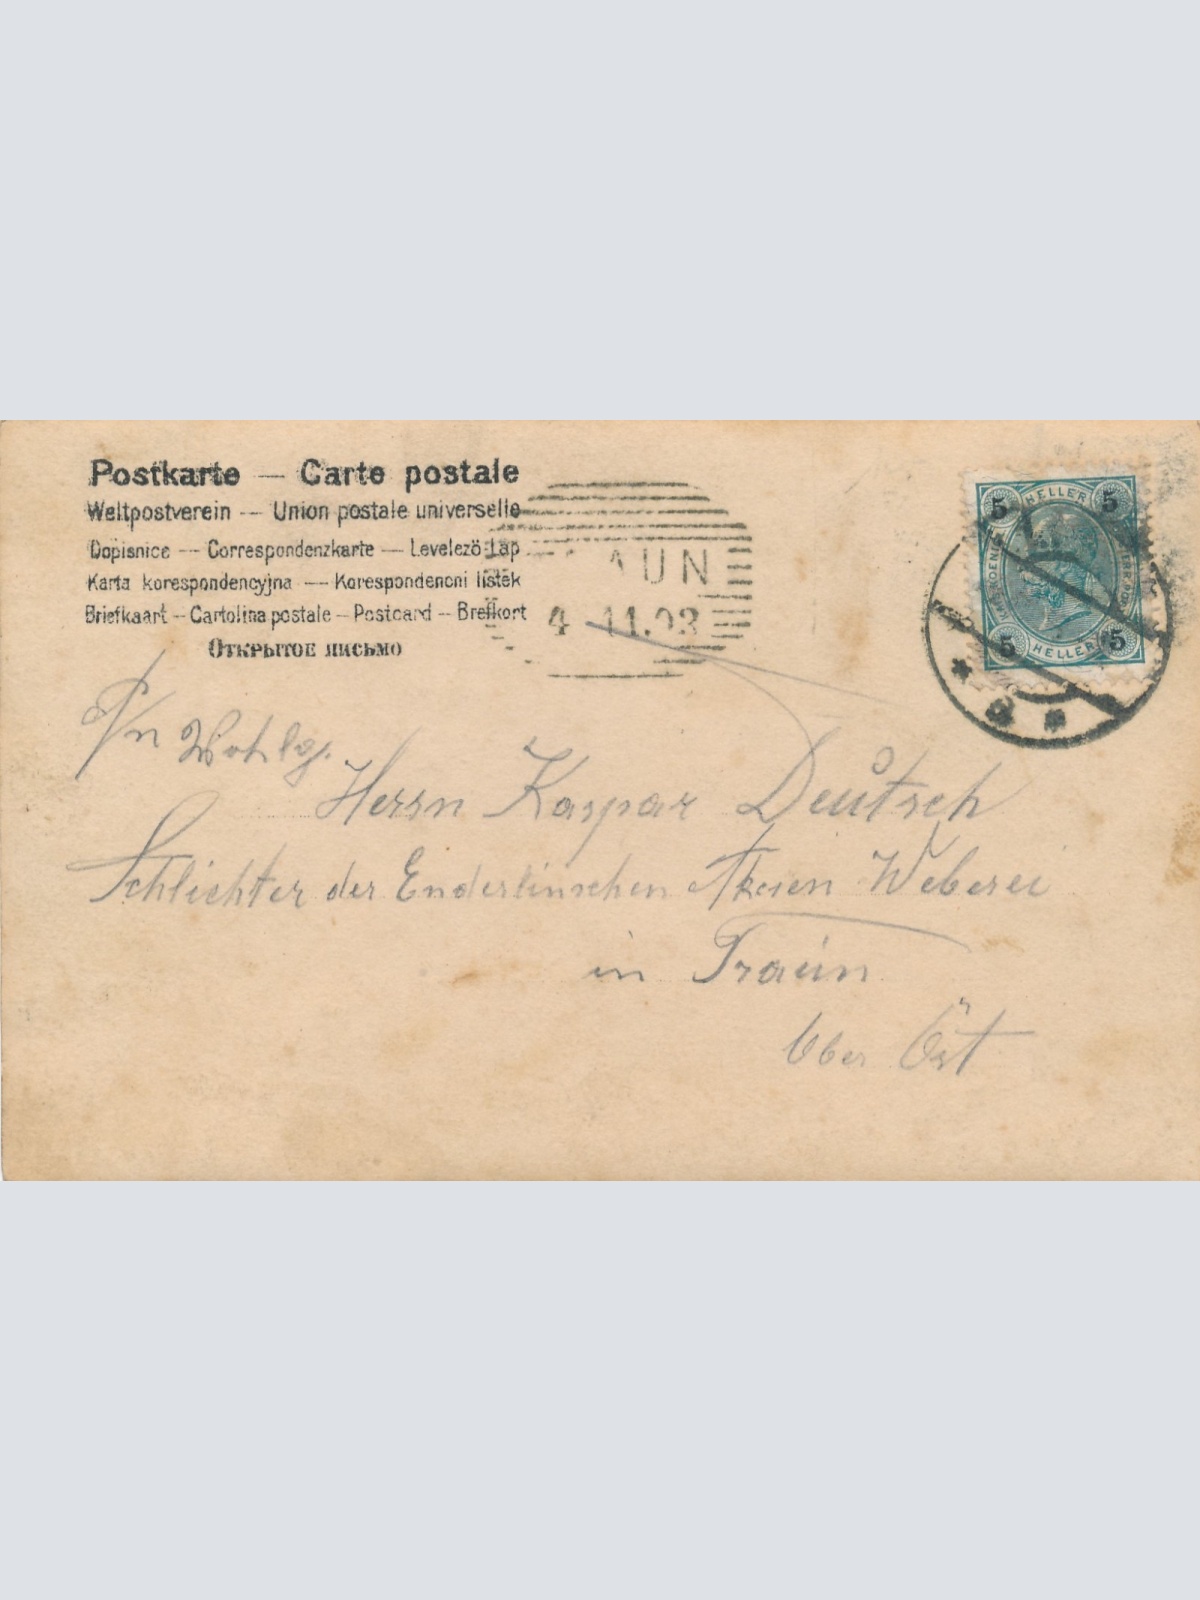 Postkarte — Carte postale
Weltpostverein — Union postale universelle
Dopisnice — Correspondenzkarte — Levelező-Lap
Karta korespondencyjna — Korespondencni listek
Briefkaart — Cartolina postale — Postcard — Brefkort
Открытое письмо
AUN
4 11.03
5 HELLER 5
5 HELLER 5
P/n Wohlg.
Herrn Kaspar Deutsch
Schlichter der Enderlinschen Weberei
in Traun
Ober Öst